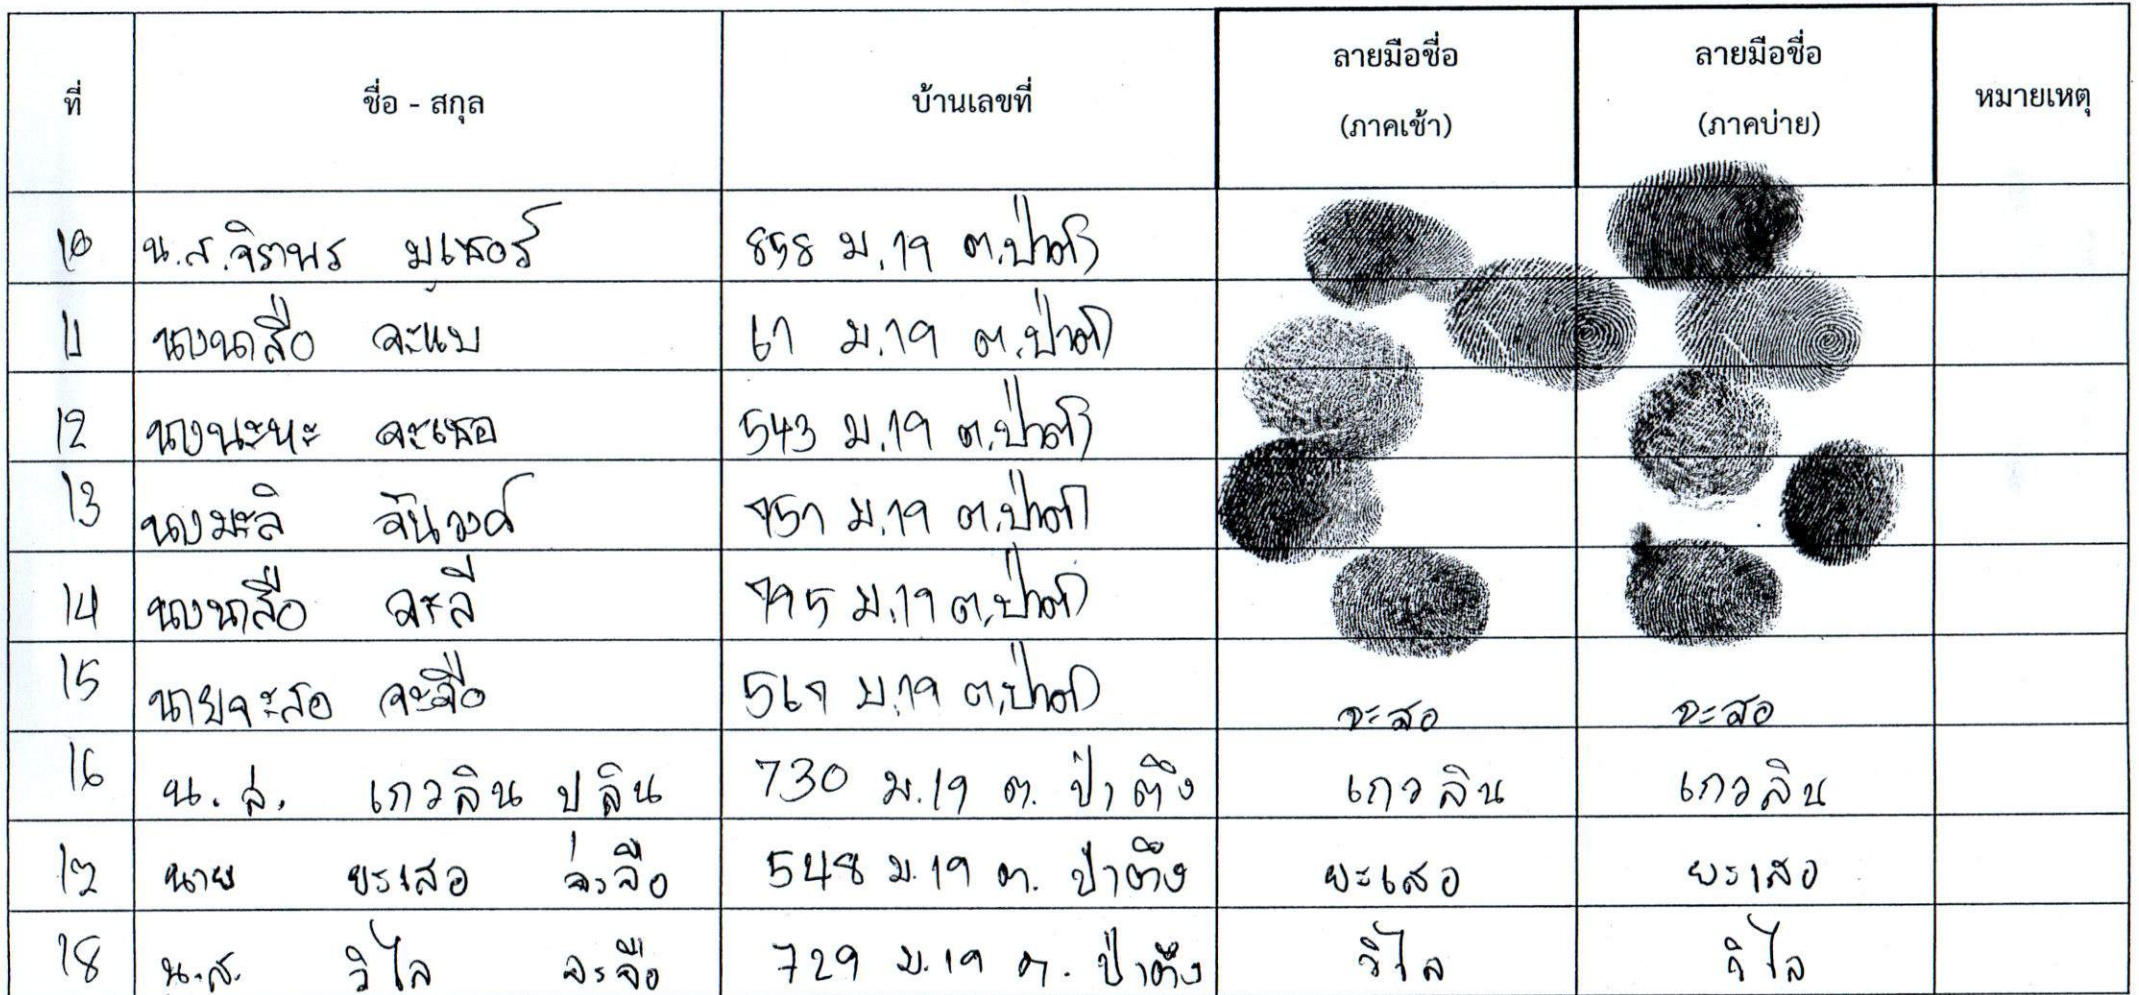 ที่ ชื่อ - สกุล บ้านเลขที่ ลายมือชื่อ (ภาคเช้า) ลายมือชื่อ (ภาคบ่าย) หมายเหตุ
10 น.ส.จิราพร มูเซอร์ 858 ม.19 ต.ป่าตึง
11 นางนาสือ จะแบ 67 ม.19 ต.ป่าตึง
12 นางนะหะ จะเซอ 543 ม.19 ต.ป่าตึง
13 นางมะลิ จันวงค์ 757 ม.19 ต.ป่าตึง
14 นางนาสือ จะลี 795 ม.19 ต.ป่าตึง
15 นายจะสอ จะจือ 567 ม.19 ต.ป่าตึง จะสอ จะสอ
16 น.ส. เกวลิน ปลิน 730 ม.19 ต. ป่าตึง เกวลิน เกวลิน
17 นาย ยะเสอ จะจือ 548 ม.19 ต. ป่าตึง ยะเสอ ยะเสอ
18 น.ส. วิไล จะจือ 729 ม.19 ต. ป่าตึง วิไล วิไล